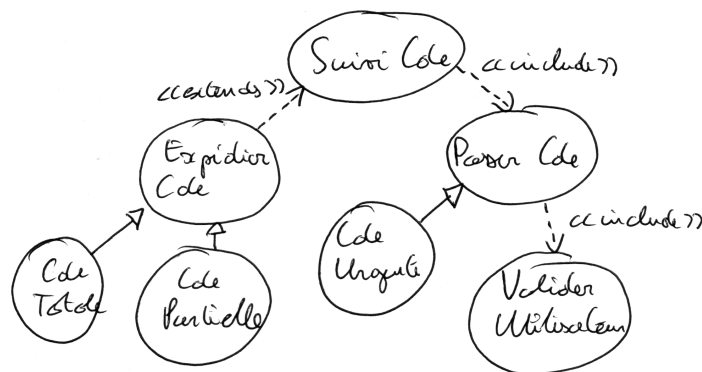 Suivi Cde
<<include>>
<<extends>>
Expédier
Cde
Passer Cde
<<include>>
Cde
Totale
Cde
Partielle
Cde
Urgente
Valider
Utilisateur